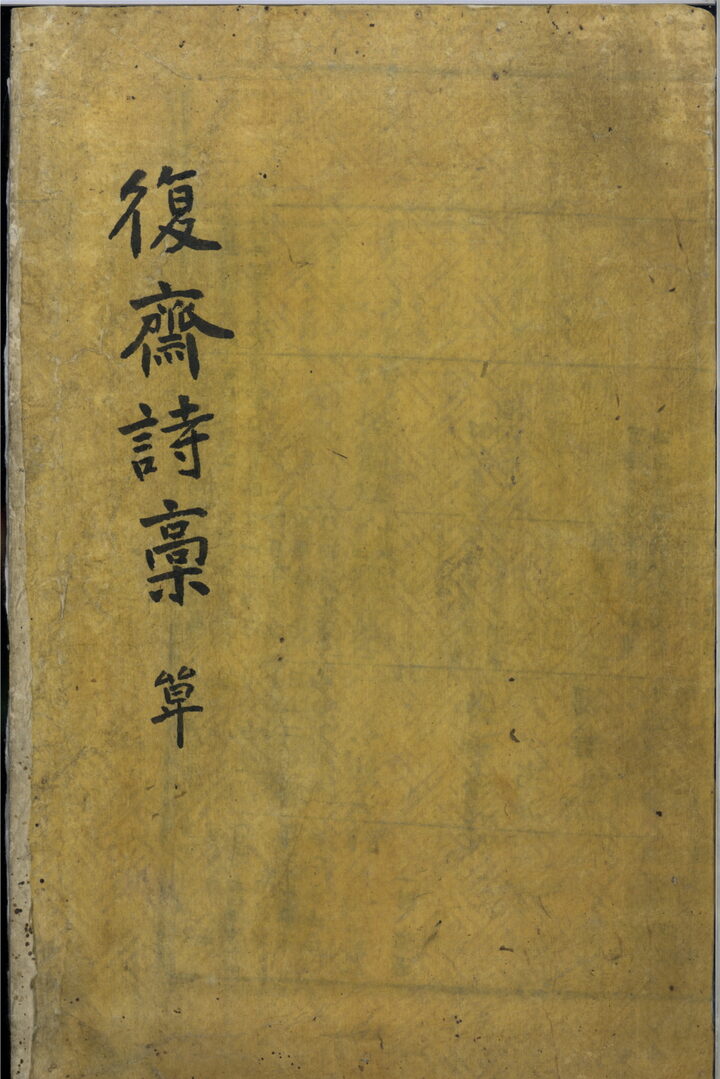 復齋詩槀 單